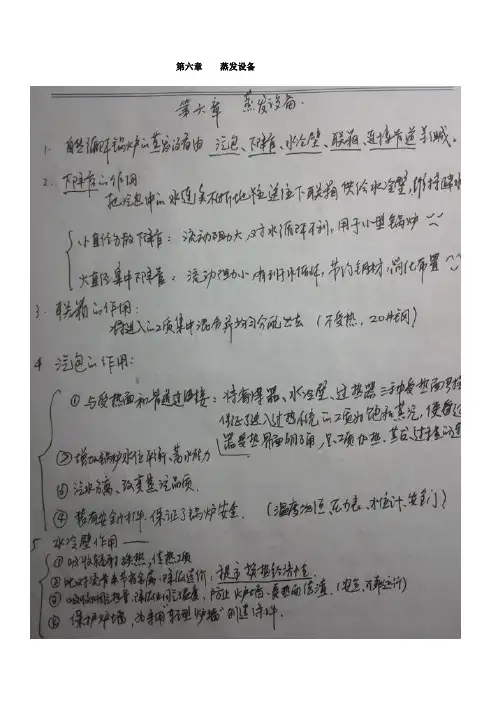 第六章 蒸发设备
第六章 蒸发设备.
1. 自然循环锅炉的蒸发设备由 汽包、下降管、水冷壁、联箱、连接管道等组成。
2. 下降管的作用
把汽包中的水连续不断地往下联箱供给水冷壁,维持
小直径分散下降管:流动阻力大,对水循环不利,用于小型锅炉
大直径集中下降管:流动阻力小 有利于水循环,节约钢材,简化布置
3. 联箱的作用:
将进入的工质集中混合并均匀分配出去 (不受热,20#钢)
4 汽包的作用:
① 与受热面和管道连接:将省煤器、水冷壁、过热器三种受热面
保证了进入过热系统的工质为饱和蒸汽,使
器受热界面明确,
② 增加锅炉水位平衡、蓄水能力
③ 汽水分离、改变蒸汽品质.
④ 装有安全附件、保证了锅炉安全. (压力表、水位计、安全门)
5 水冷壁作用——
① 换热,传热工质
② 节省金属,降低造价,提高
③ 防止炉墙、受热面结渣.
④ 保护炉墙,为采用"轻型炉墙"创造条件.